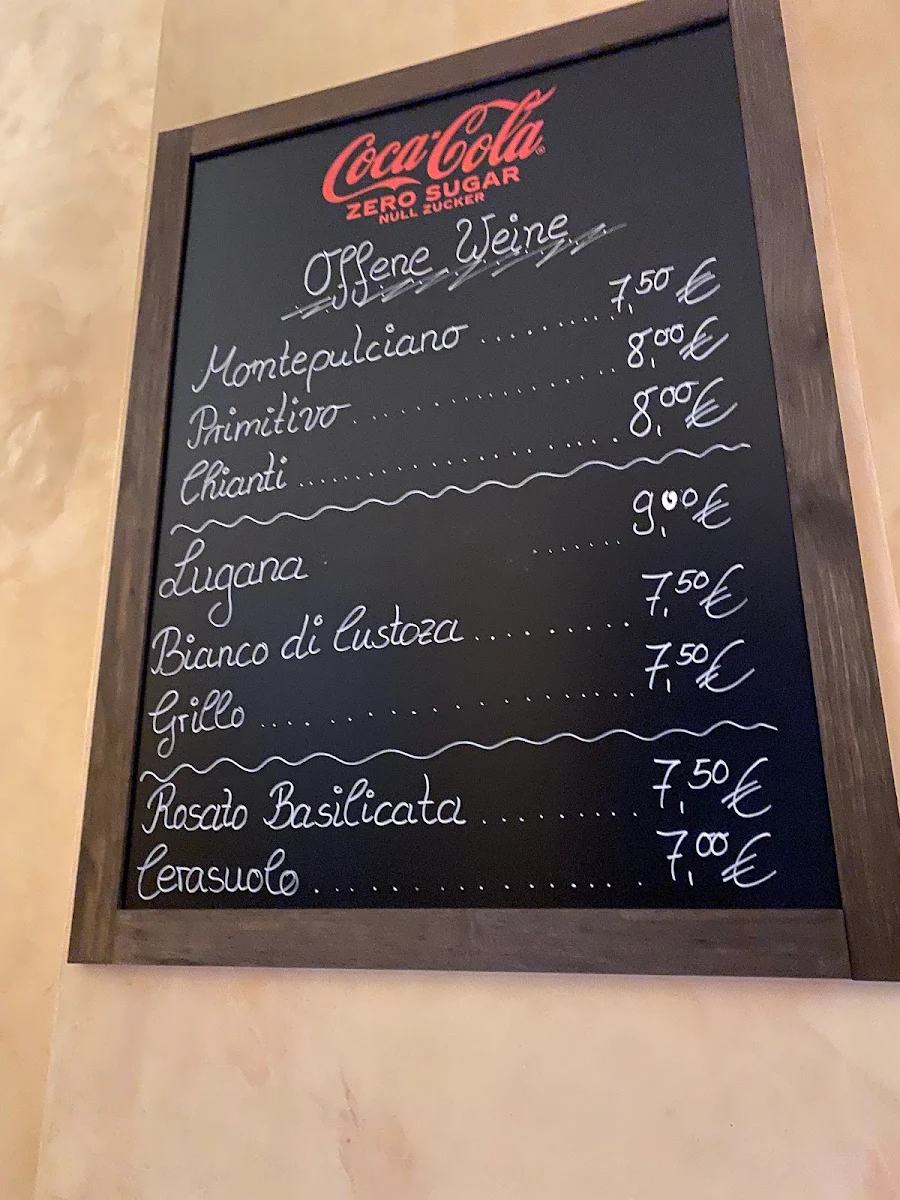 Coca-Cola®
ZERO SUGAR
NULL ZUCKER
Offene Weine
Montepulciano ........ 7,50 €
Primitivo ................ 8,00 €
Chianti .................... 8,00 €
Lugana ...... 9,00 €
Bianco di Custoza ......... 7,50 €
Grillo .................. 7,50 €
Rosato Basilicata ......... 7,50 €
Cerasuolo ................ 7,00 €